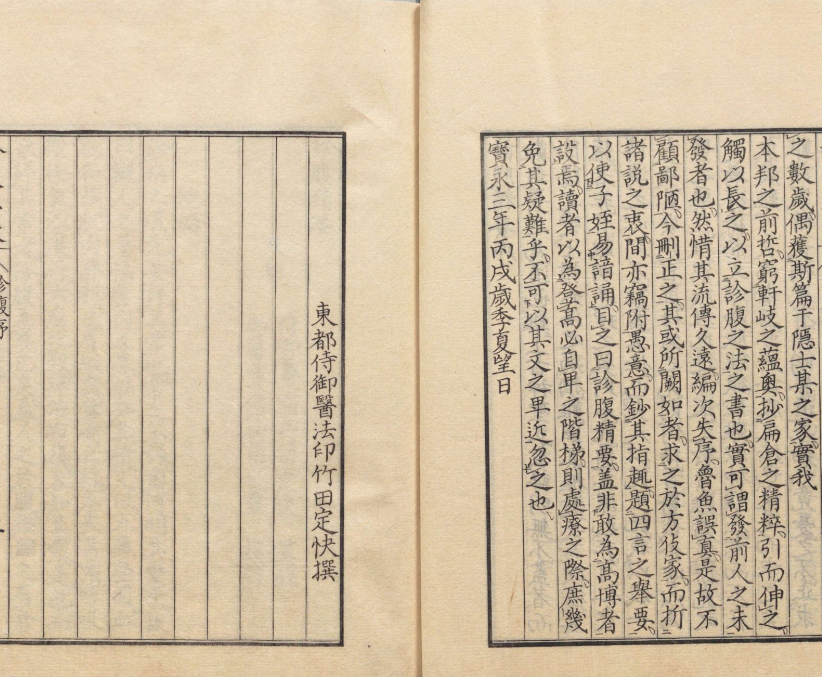 之數歲偶獲斯篇于隱士某之家實我
本邦之前哲窮軒岐之蘊奧抄扁倉之精粹引而伸之
觸以長之以立診腹之法之書也實可謂發前人之未
發者也然惜其流傳久遠編次失序魯魚誤真是故不
顧鄙陋今刪正之其或所闕如者求之於方伎家而折
諸說之衷間亦竊附愚意而鈔其指趣題四言之舉要
以使子姪易諳誦目之曰診腹精要蓋非敢為髙博者
設焉讀者以為登髙必自卑之階梯則處療之際庶幾
免其疑難乎不可以其文之卑近忽之也
寶永三年丙戌歲季夏望日
東都侍御醫法印竹田定快撰
診腹序